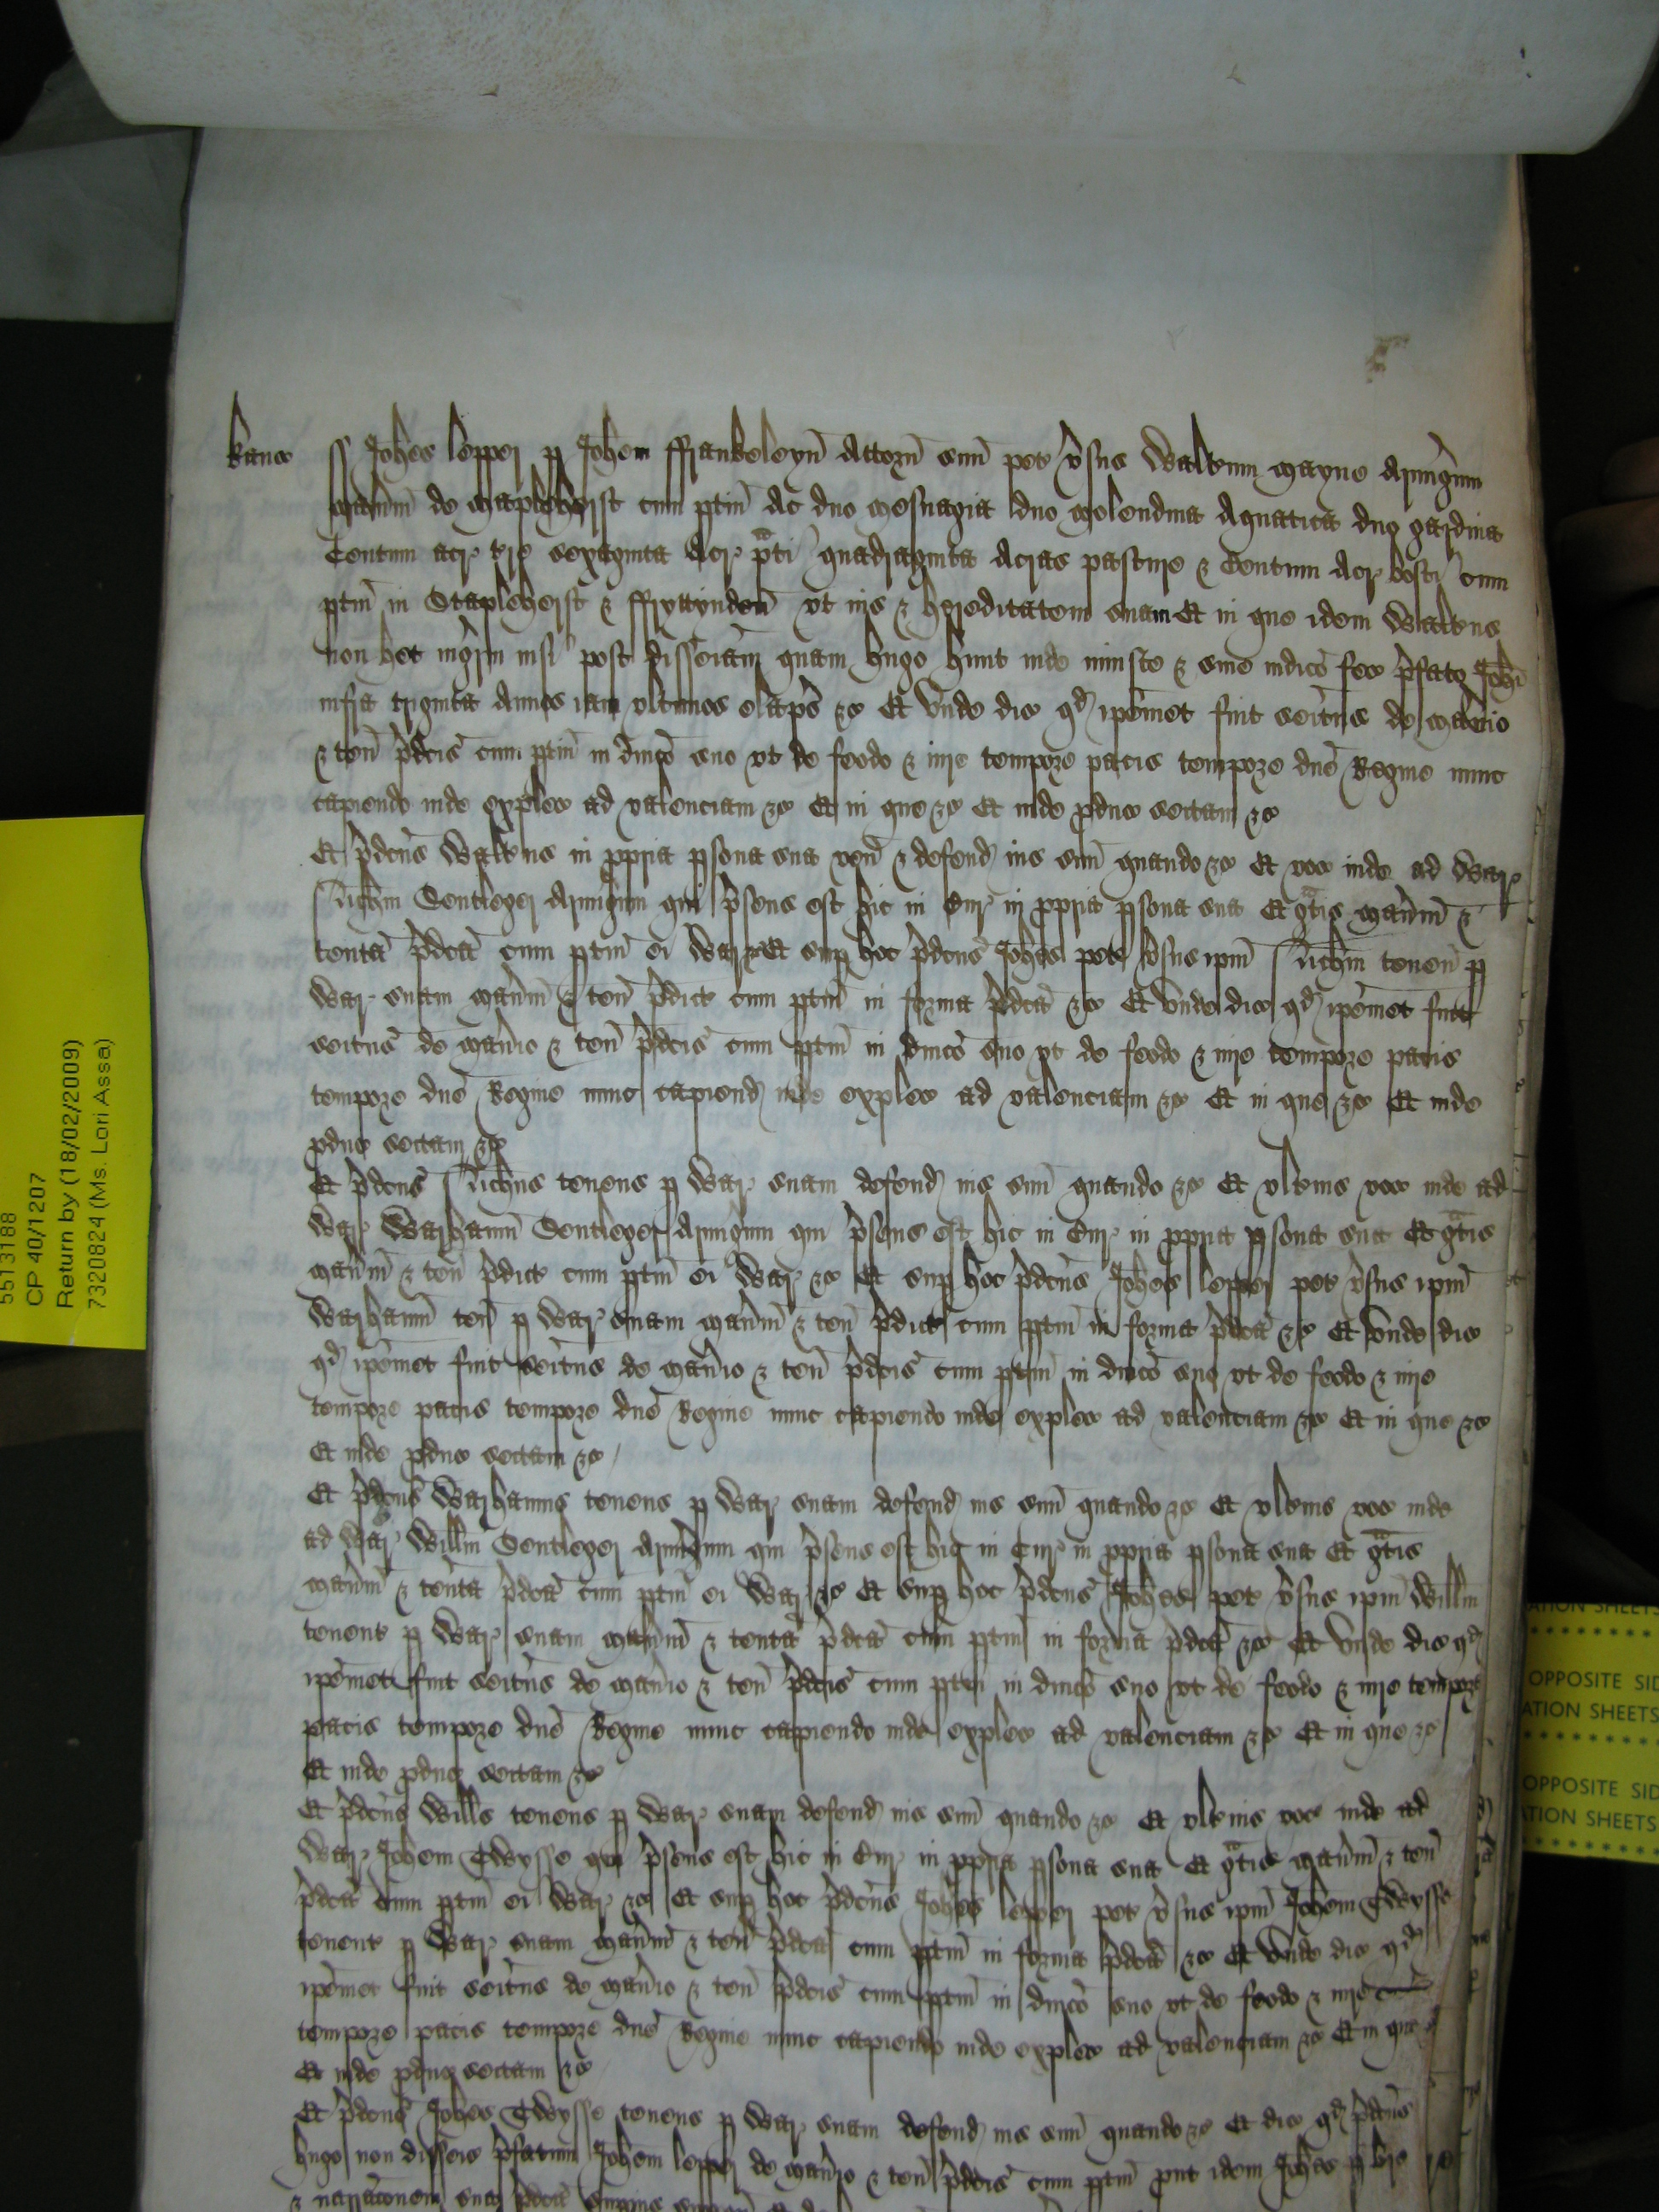 Kanc ss Johes Lepper p Johem Frankeleyn Attorn suu pet vsus Walterum Mayne Armigerum
maniu de Maplehurst cum ptin ac duo mesuagia duo molendina aquatica duo gardina
Centum acr tre sexaginta acr pti quadraginta acras pasture & Centum acr bosci cum
ptin in Staplehurst & Frittynden ut jus & hereditatem suam Et in que idem Walterus
non het ingrm nisi post disseinam quam Hugo Hunt inde injuste & sine judico fec pfato Johi
infra triginta annos jam ultimos elaps &c Et unde dic qd ipemet fuit seitus de manio
& ten pdcis cum ptin in dnico suo ut de feodo & jure tempore pacis tempore dne Regine nunc
capiendo inde explec ad valenciam &c Et in que &c Et inde pduc sectam &c
Et pdcus Walterus in ppria psona sua ven & defend jus suu quando &c Et voc inde ad War
Nichm Sentleger Armigum qui psens est hic in Cur in ppria psona sua Et gtis maniu &
tenta pdca cum ptin ei War &c Et sup hoc pdcus Johes pet vsus ipm Nichm tenen p
War suam maniu & ten pdict cum ptin in forma pdca &c Et unde dic qd ipemet fuit
seitus de manio & ten pdcis cum ptin in dnico suo ut de feodo & jure tempore pacis
tempore dne Regine nunc capiend inde explec ad valenciam &c Et in que &c Et inde
pduc sectam &c
Et pdcus Nichus tenens p War suam defend jus suu quando &c Et ulterius voc inde ad
War Warhamu Sentleger Armigum qui psens est hic in Cur in ppria psona sua Et gtis
maniu & ten pdict cum ptin ei War &c Et sup hoc pdcus Johes Lepper pet vsus ipm
Warhamu ten p War suam maniu & ten pdict cum ptin in forma pdca &c Et unde dic
qd ipemet fuit seitus de manio & ten pdcis cum ptin in dnico suo ut de feodo & jure
tempore pacis tempore dne Regine nunc capiendo inde explec ad valenciam &c Et in que &c
Et inde pduc sectam &c
Et pdcus Warhamus tenens p War suam defend jus suu quando &c Et ulterius voc inde
ad War Willm Sentleger Armigum qui psens est hic in Cur in ppria psona sua Et gtis
maniu & tenta pdca cum ptin ei War &c Et sup hoc pdcus Johes pet vsus ipm Willm
tenent p War suam maniu & tenta pdca cum ptin in forma pdca &c Et unde dic qd
ipemet fuit seitus de manio & ten pdcis cum ptin in dnico suo ut de feodo & jure tempore
pacis tempore dne Regine nunc capiendo inde explec ad valenciam &c Et in que &c
Et inde pduc sectam &c
Et pdcus Wills tenens p War suam defend jus suu quando &c Et ulterius voc inde ad
War Johem Twysse qui psens est hic in Cur in ppria psona sua Et gtis maniu & ten
pdca cum ptin ei War &c Et sup hoc pdcus Johes Lepper pet vsus ipm Johem Twysse
tenent p War suam maniu & ten pdca cum ptin in forma pdca &c Et unde dic qd
ipemet fuit seitus de manio & ten pdcis cum ptin in dnico suo ut de feodo & jure
tempore pacis tempore dne Regine nunc capiendo inde explec ad valenciam &c Et in que
Et inde pduc sectam &c
Et pdcus Johes Twysse tenens p War suam defend jus suu quando &c Et dic qd pdcus
Hugo non disseis pfatum Johem Lepper de manio & ten pdcis cum ptin put idem Johes p bre
& narraconem sua pdca supius
5513188
CP 40/1207
Return by (18/02/2009)
7320824 (Ms. Lori Assa)
ATION SHEETS
OPPOSITE SID
ATION SHEETS
OPPOSITE SID
ATION SHEETS